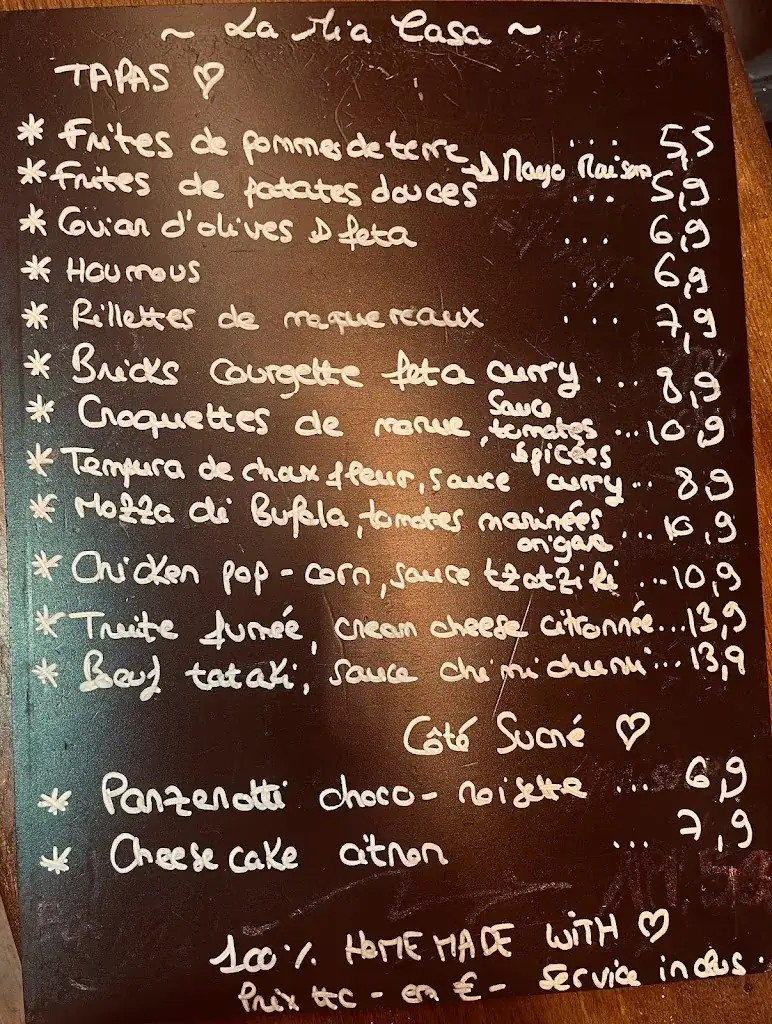 ~ La Mia Casa ~
TAPAS ♡
* Frites de pommes de terre ... 5,5
→ Mayo Maison
* Frites de patates douces ... 5,9
* Caviar d'olives & feta ... 6,9
* Houmous ... 6,9
* Rillettes de maquereaux ... 7,9
* Bricks courgette feta curry ... 8,9
* Croquettes de morue, sauce tomates épicées ... 10,9
* Tempura de chox fleur, sauce curry .. 8,9
* Mozza di Bufala, tomates marinées origan ... 10,9
* Chicken pop-corn, sauce tzatziki ... 10,9
* Truite fumée, cream cheese citronnée ... 13,9
* Bœuf tataki, sauce chimichurri ... 13,9
Côté Sucré ♡
* Panzerotti choco-noisette ... 6,9
* Cheese cake citron ... 7,9
100% HOME MADE WITH ♡
Prix ttc - en € - Service inclus.